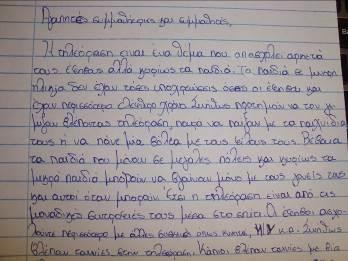 Αγαπητές συμμαθήτριες και συμμαθητές,
Η τηλεόραση είναι ένα θέμα που απασχολεί αρκετά
τους έφηβους αλλά κυρίως τα παιδιά. Τα παιδιά σε μικρή
ηλικία δεν έχουν τόσες υποχρεώσεις όσες οι έφηβοι και
έχουν περισσότερο ελεύθερο χρόνο. Συνήθως προτιμούν να τον
βλέποντας τηλεόραση, παρά να παίξουν με τα παιχνίδια
τους ή να πάνε μια βόλτα με τους φίλους τους. Βέβαια
τα παιδιά που μένουν σε μεγάλες πόλεις και κυρίως τα
μικρά παιδιά μπορούν να βγαίνουν μόνο με τους γονείς τους
και αυτοί όταν μπορούν. Έτσι η τηλεόραση είναι από τις
μοναδικές τους μέσα στο σπίτι. Οι έφηβοι ασχο-
λούνται περισσότερο με άλλες όπως κινητά, Η/Υ κ.α. Συνήθως
βλέπουν ταινίες στην τηλεόραση. Κάποιοι βλέπουν ταινίες με βία